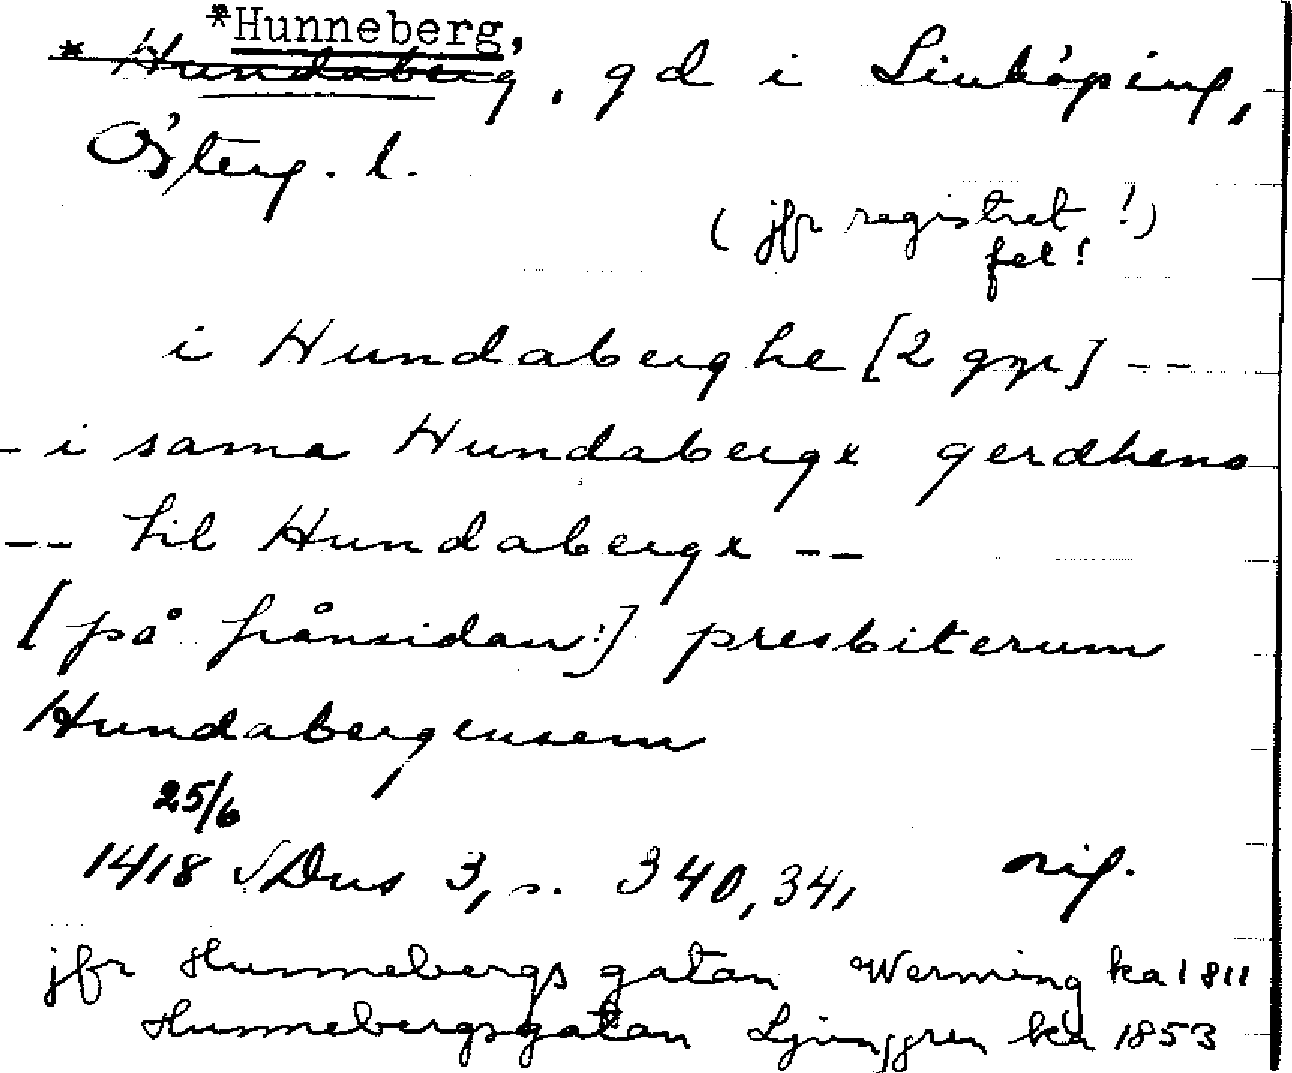 *Hunneberg,
* Hundaberg, gd i Linköping,
Österg. l.
(jfr registret!)
fel!
i Hundaberghe [2 ggr] --
- i sama Hundabergx gerdhens
-- til Hundabergx --
[på frånsidan:] presbiterum
Hundabergensem
25/6
1418 SDns 3, s. 340, 341 orig.
jfr Hunnebergs gatan Werming ka 1811
Hunnebergsgatan Ljunggren ka 1853